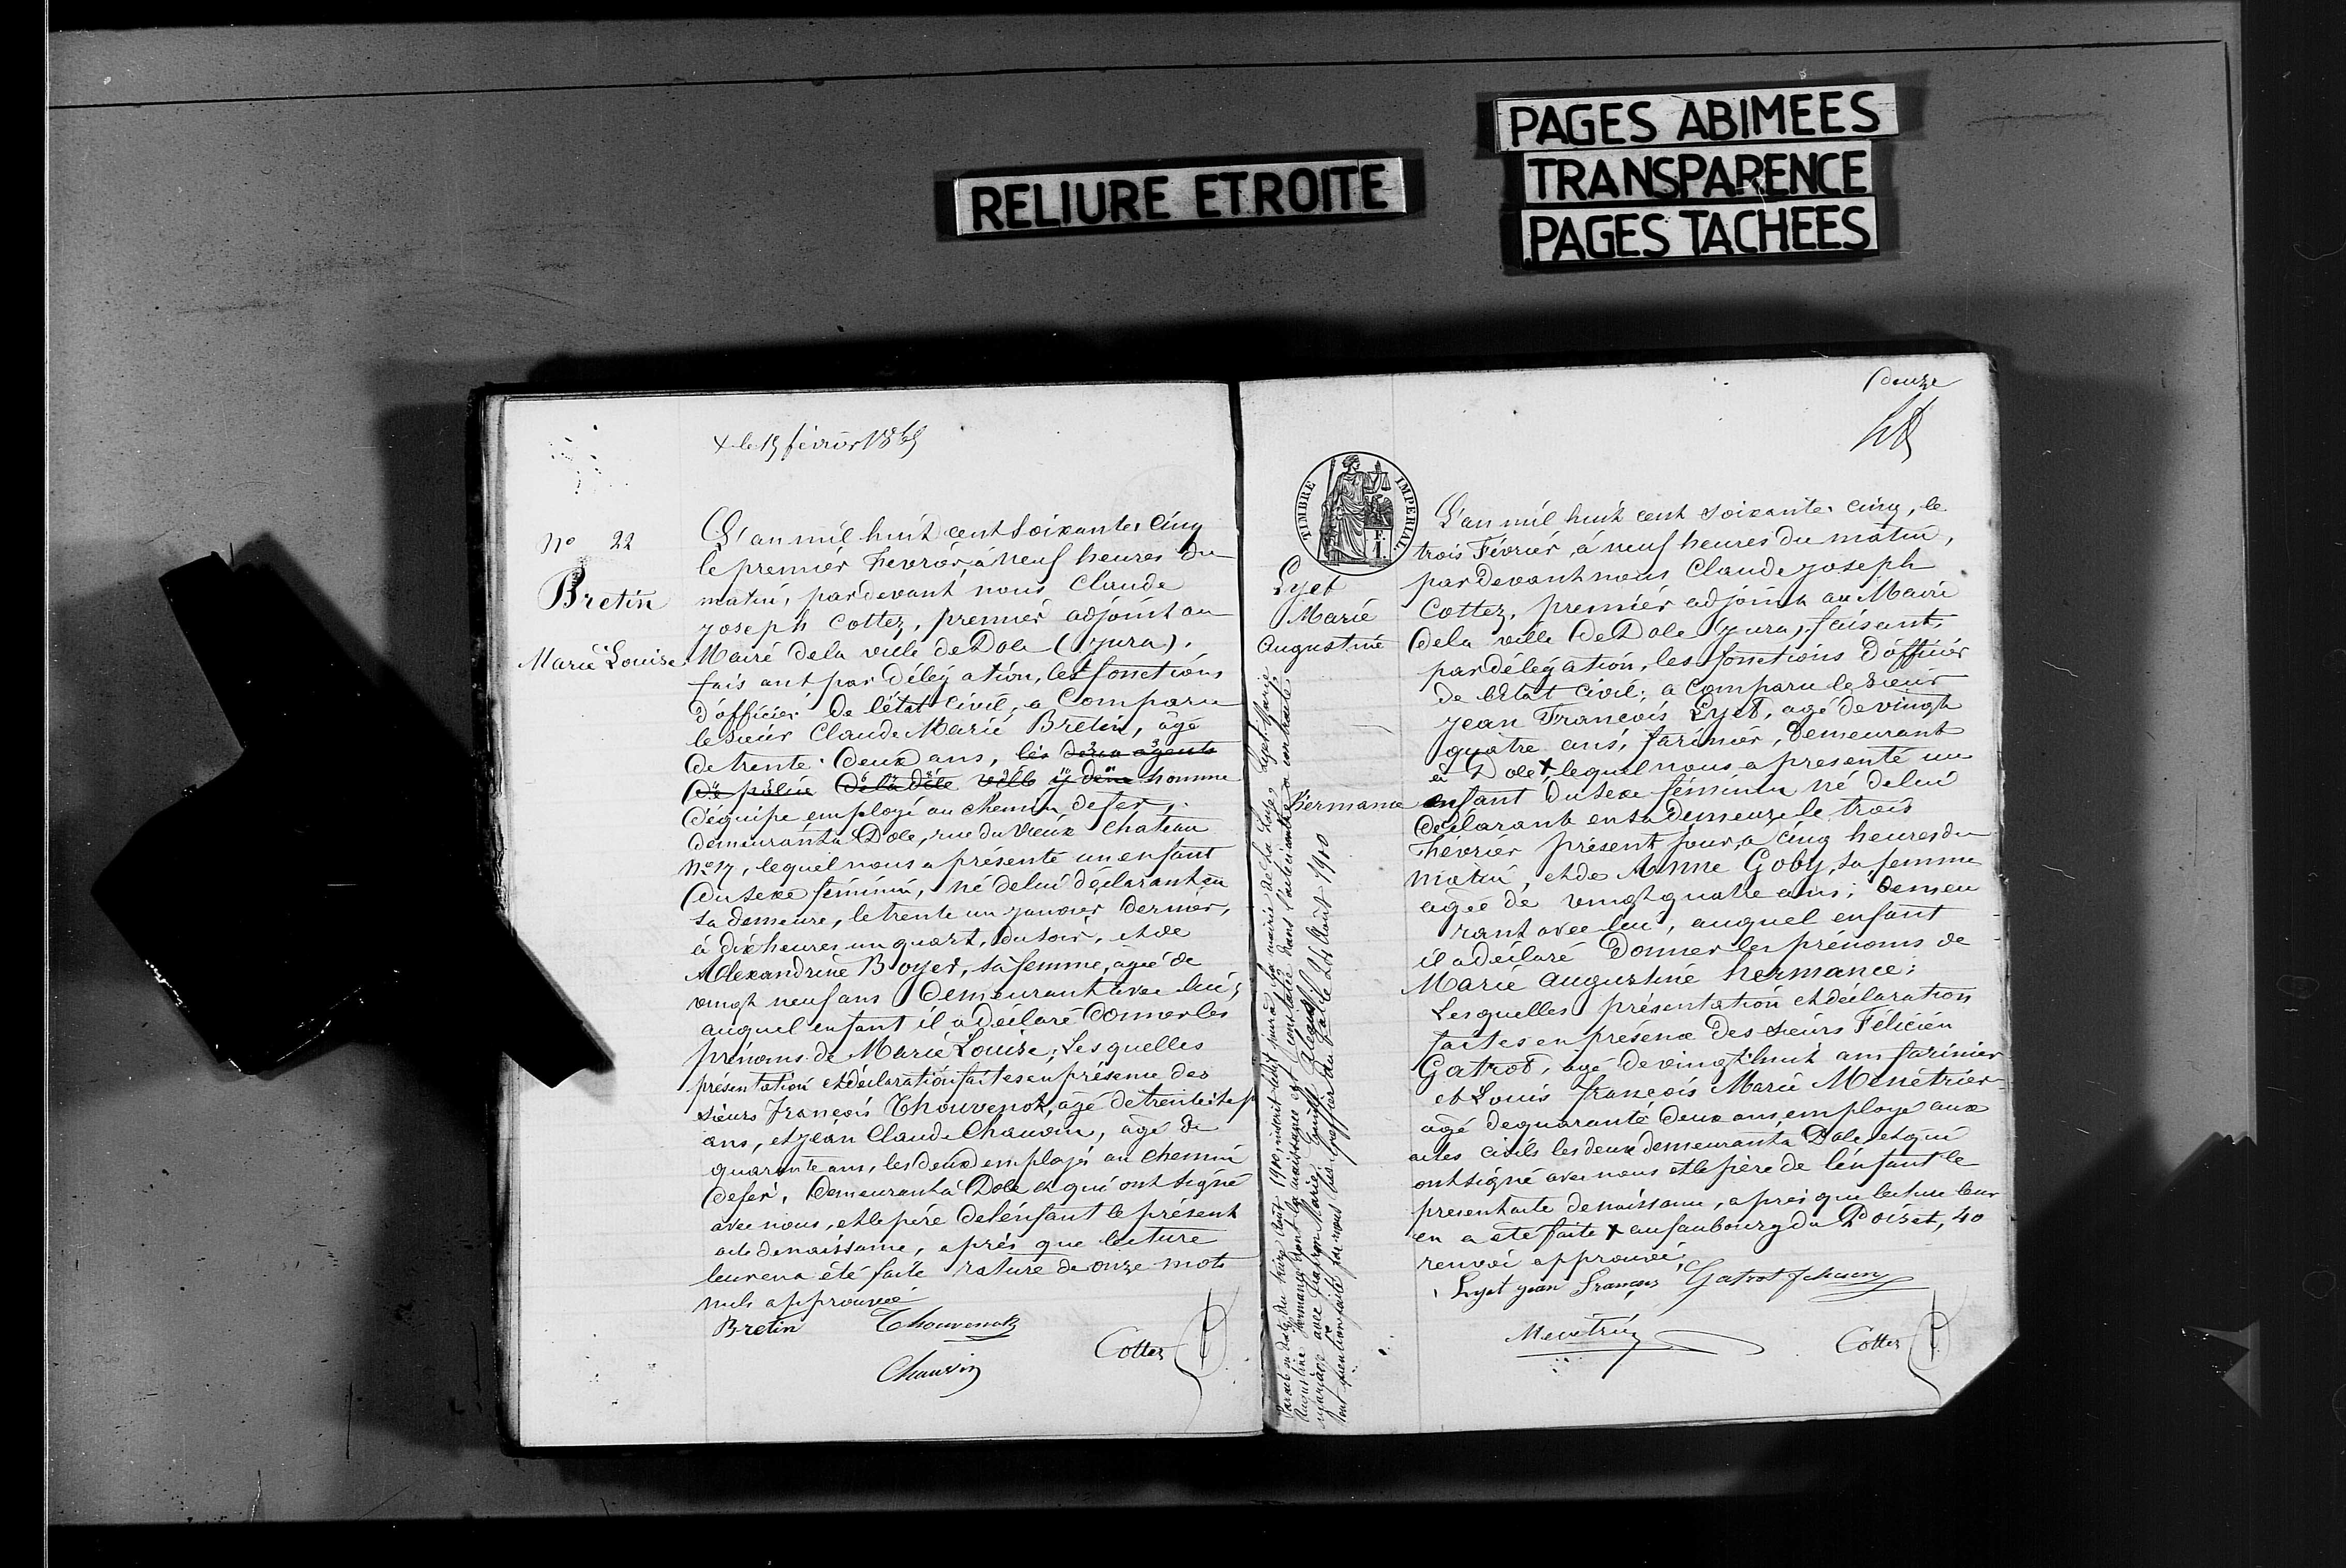 RELIURE ETROITE
PAGES ABIMEES
TRANSPARENCE
PAGES TACHEES
+ le 15 février 1865
N° 22
Bretin
Marie Louise
L'an mil huit cent soixante cinq
le premier Fevrier, à neuf heures du
matin, pardevant nous Claude
joseph Cottez, premier adjoint au
Maire dela ville de Dole (jura).
faisant par délégation, les fonctions
d'officier de l'état civil, a Comparu
le sieur Claude Marie Bretin, âgé
de trente deux ans, les deux agents
de police de la dite ville y dem homme
d'équipe employé au chemin defer,
demeurant à Dole, rue du Vieux Chateau
N° 17, lequel nous a présenté un enfant
du sexe féminin, né de lui déclarant en
sa demeure, le trente un janvier dernier,
à dix heures un quart, du soir, et de
Alexandrine Boyer, sa femme, agée de
vingt neuf ans demeurant avec lui;
auquel enfant il a déclaré donner les
prénoms de Marie Louise; Les quelles
présentation et déclaration faites en présence des
sieurs François Thouvenot, âgé de trente sept
ans, et jean Claude Chauvin, âgé de
quarante ans, les deux employés au chemin
defer, demeurant à Dole et qui ont signé
avec nous, et le père de l'enfant le présent
acte de naissance, après que lecture
leur en a été faite rature de onze mots
nuls approuvée
Bretin Thouvenot
Chauvin
Cottez
douze
TIMBRE IMPERIAL
1 F.
Lyet
Marie
Augustine
Hermance
L'an mil huit cent soixante cinq, le
trois Février, à neuf heures du matin,
pardevant nous Claude joseph
Cottez, premier adjoint au Maire
dela ville de Dole (jura), faisant
par délégation, les fonctions d'officier
de l'Etat civil; a Comparu le sieur
jean François Lyet, agé de vingt
quatre ans, farinier, demeurant
à Dole + lequel nous a présenté un
enfant du sexe féminin né de lui
déclarant en sa demeure, le trois
Février présent jour, à cinq heures du
matin, et de Anne Goby, sa femme
agée de vingt quatre ans; demeu
rant avec lui, auquel enfant
il a déclaré donner les prénoms de
Marie augustine hermance:
Lesquelles présentation et déclaration
faites en présence des sieurs Félicien
Gatrot, agé de vingt huit ans farinier
et Louis françois Marie Menétrier
agé de quarante deux ans, employé aux
actes civils les deux demeurant à Dole, et qui
ont signé avec nous et le père de l'enfant le
présent acte de naissance, après que lecture leur
en a été faite + au faubourg du Poiset, 40
renvoi approuvé.
Lyet jean François Gatrot felicien
Menétrier
Cottez
Par acte en date du treize Août 1910, inscrit le dit jour à la mairie de La Loye, Lyet Marie
Augustine Hermance dont la naissance est constatée dans l'acte ci-contre a contracté
mariage avec
Dont mention faite par nous greffier au Dole le 24 Août 1910